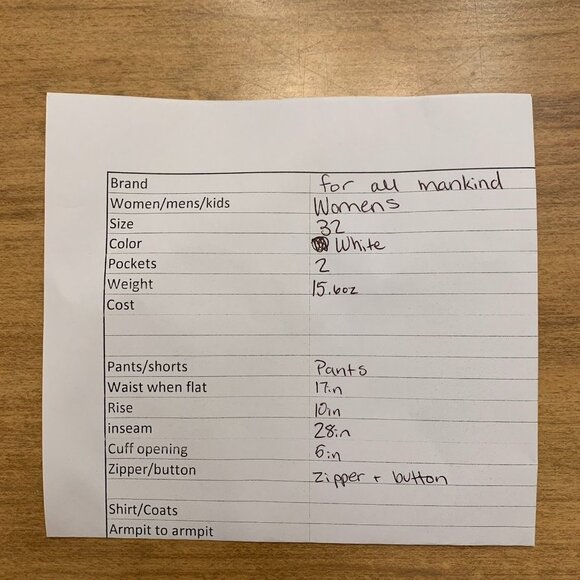 Brand for all mankind
Women/mens/kids Womens
Size 32
Color White
Pockets 2
Weight 15.6oz
Cost
Pants/shorts Pants
Waist when flat 17in
Rise 10in
inseam 28in
Cuff opening 6in
Zipper/button Zipper + button
Shirt/Coats
Armpit to armpit